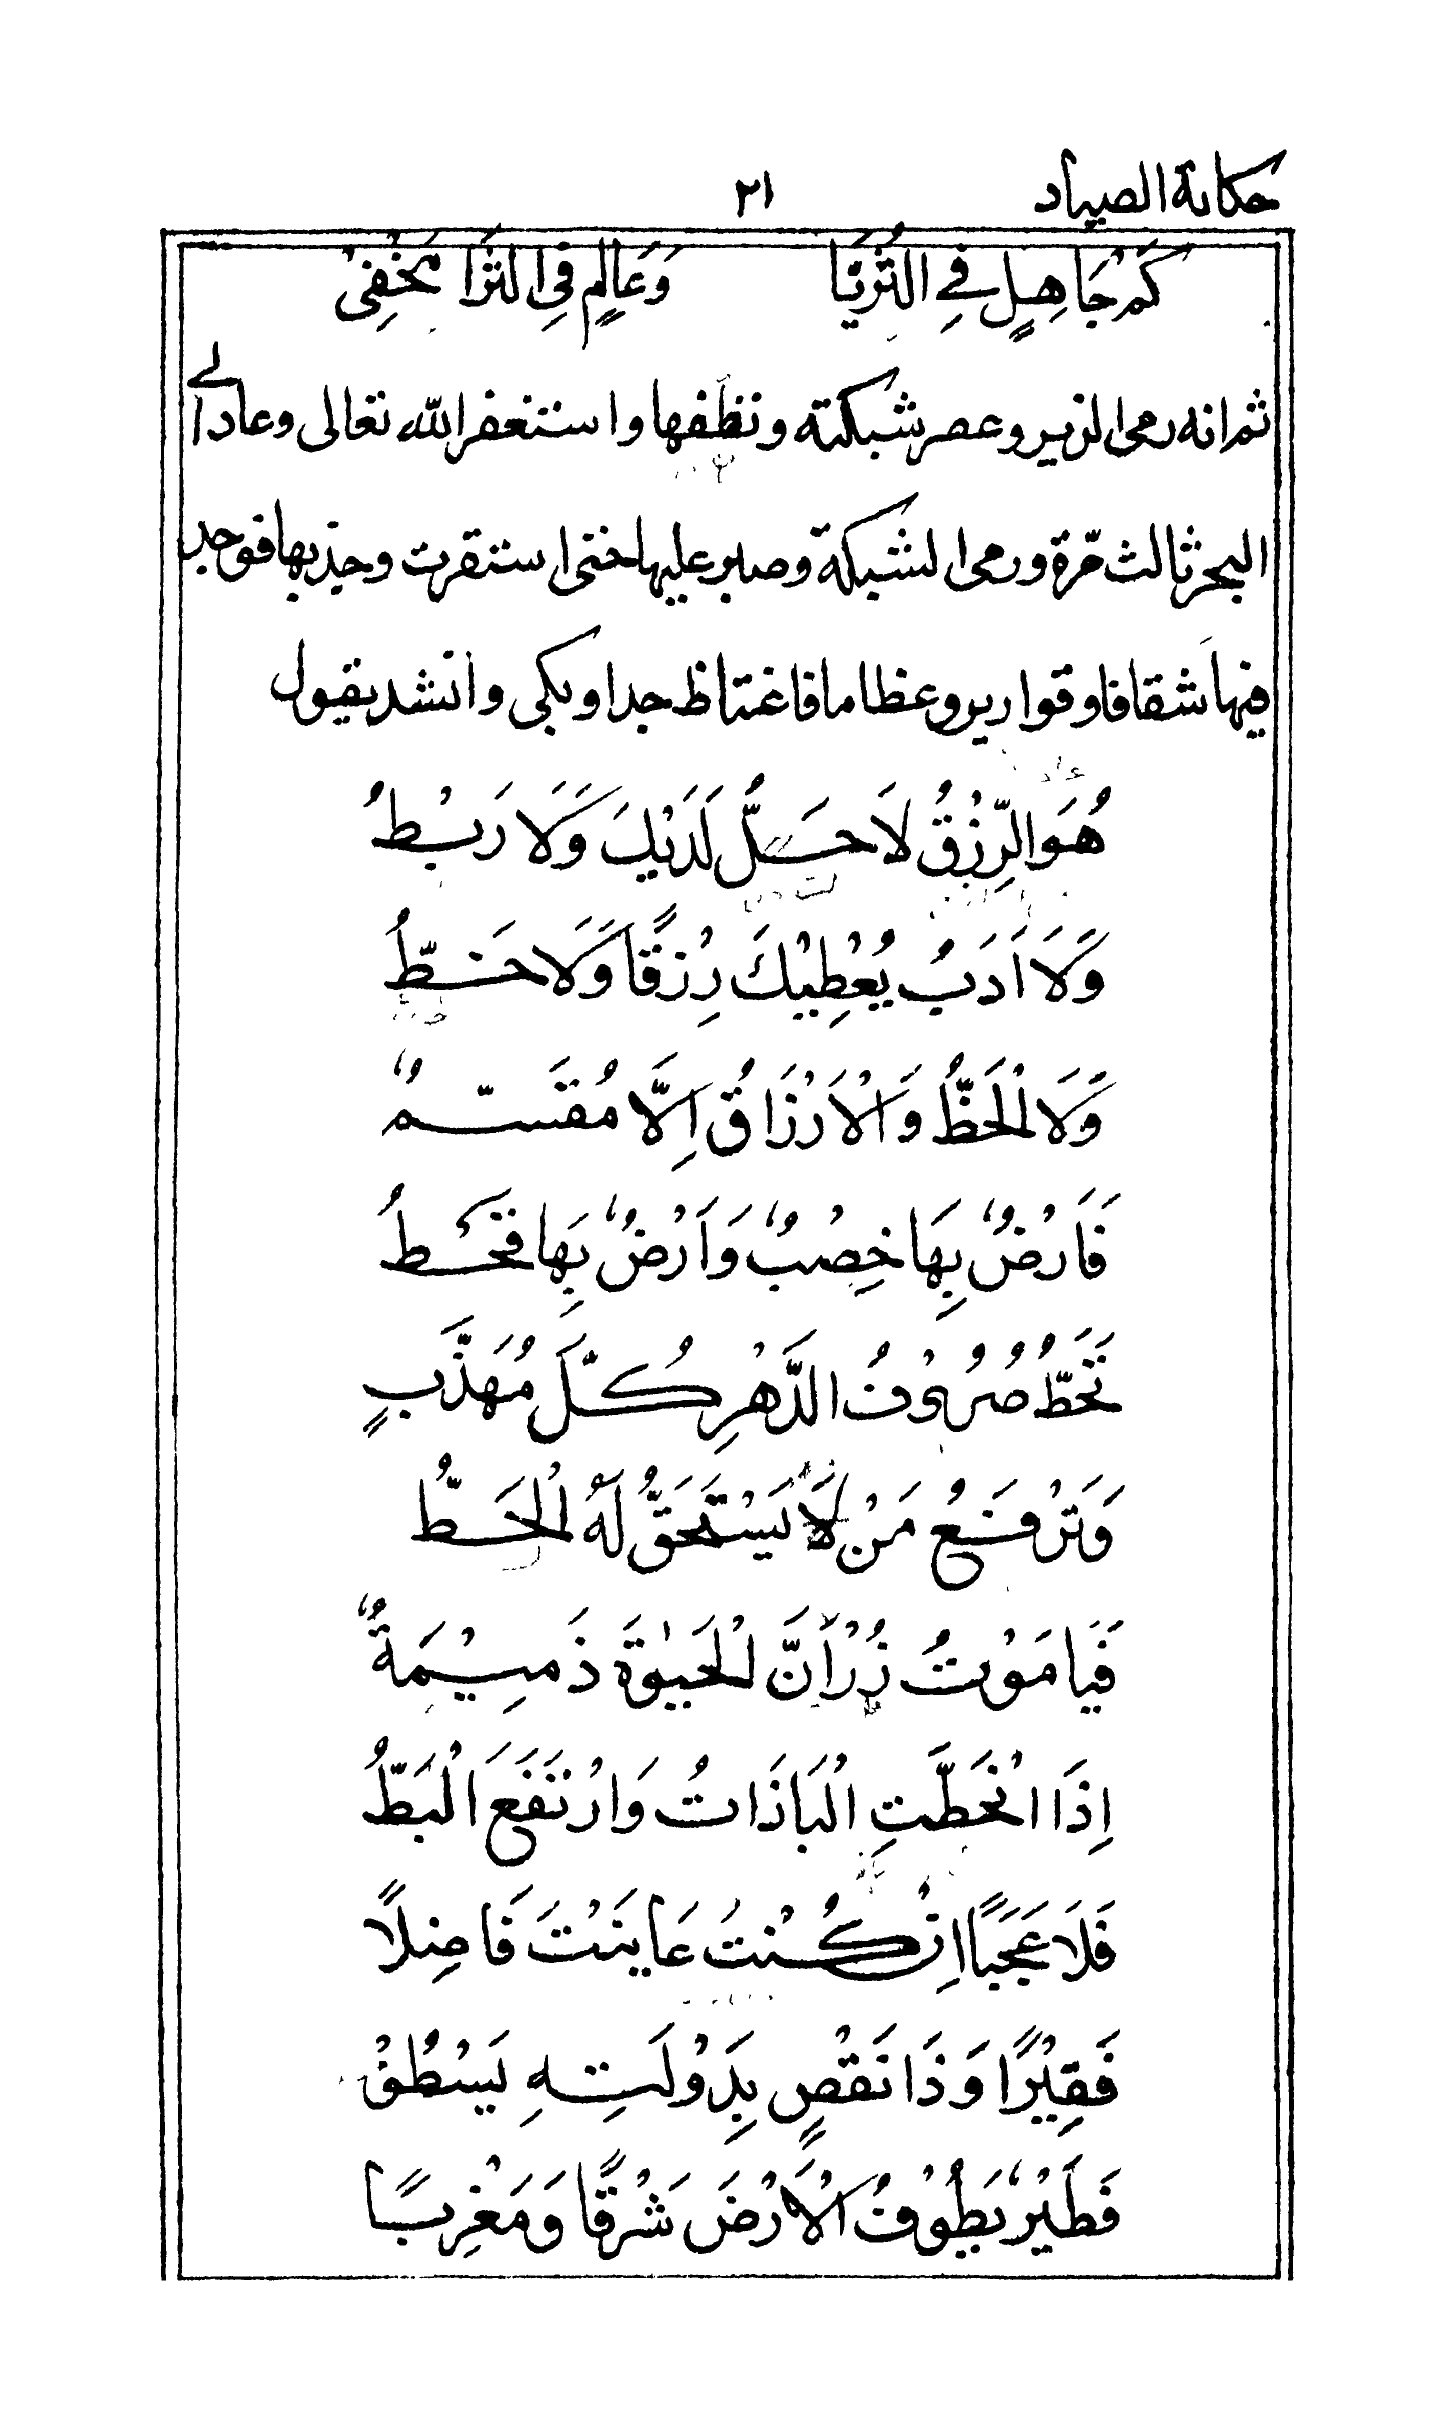 حكاية الصياد ٢١
كَمْ جَاهِلٍ فِي الثُّرَيَّا وَعَالِمٍ فِي الثَّرَا مَخْفِي
ثم انه رمى الزير وعصر شبكته ونظفها واستغفر الله تعالى وعاد الى
البحر ثالث مرة ورمى الشبكة وصبر عليها حتى استقرت وجذبها فوجد
فيها شقافا وقوارير وعظاما فاغتاظ جدا وبكى وانشد يقول
هُوَ الرِّزْقُ لَا حَلٌّ لَدَيْكَ وَلَا رَبْطُ
وَلَا اَدَبُ يُعْطِيْكَ رِزْقًا وَلَا خَطُّ
وَلَا الْحَظُّ وَالْاَرْزَاقُ اِلَّا مُقَسَّمٌ
فَاَرْضٌ بِهَا خِصْبٌ وَاَرْضٌ بِهَا قَحْطُ
تَحُطُّ صُرُوْفُ الدَّهْرِ كُلَّ مُهَذَّبٍ
وَتَرْفَعُ مَنْ لَا يَسْتَحِقُّ لَهُ الْحَطُّ
فَيَا مَوْتُ زُرْ اَنَّ الْحَيٰوةَ ذَمِيْمَةٌ
اِذَا انْحَطَّتِ الْبَازَاتُ وَارْتَفَعَ الْبَطُّ
فَلَا عَجَبًا اِنْ كُنْتُ عَايَنْتَ فَاضِلًا
فَقِيْرًا وَذَا نَقْصٍ بِدَوْلَتِهِ يَسْطُوْ
فَطَيْرٌ يَطُوْفُ الْاَرْضَ شَرْقًا وَمَغْرِبًا